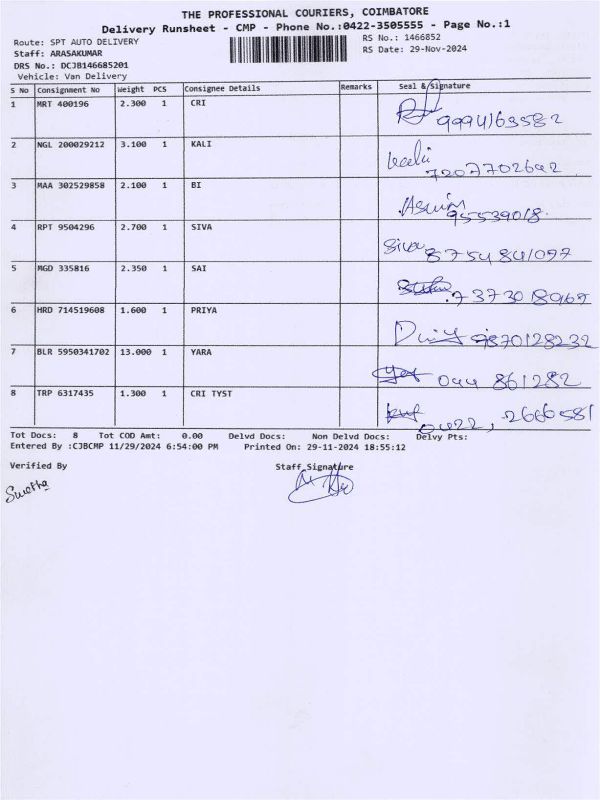 THE PROFESSIONAL COURIERS, COIMBATORE
Delivery Runsheet - CMP - Phone No.:0422-3505555 - Page No.:1
Route: SPT AUTO DELIVERY
RS No.: 1466852
Staff: ARASAKUMAR
RS Date: 29-Nov-2024
DRS No.: DCJB146685201
Vehicle: Van Delivery
S No Consignment No Weight PCS Consignee Details Remarks Seal & Signature
1 MRT 400196 2.300 1 CRI 9994163582
2 NGL 200029212 3.100 1 KALI Kali 7207702642
3 MAA 302529858 2.100 1 BI 95539018
4 RPT 9504296 2.700 1 SIVA Siva 8754841097
5 MGD 335816 2.350 1 SAI
6 HRD 714519608 1.600 1 PRIYA 9870128232
7 BLR 5950341702 13.000 1 YARA 044 861282
8 TRP 6317435 1.300 1 CRI TYST 0422, 2666581
Tot Docs: 8 Tot COD Amt: 0.00 Delvd Docs: Non Delvd Docs: Delvy Pts:
Entered By :CJBCMP 11/29/2024 6:54:00 PM Printed On: 29-11-2024 18:55:12
Verified By Staff Signature
Swetha